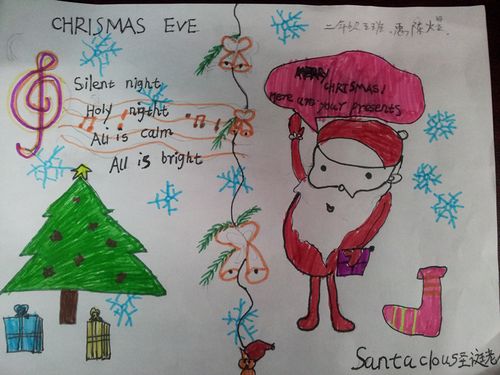 CHRISMAS EVE
二年级
Silent night
Holy night
All is calm
All is bright
MERRY
CHRISMAS!
Here are your presents
Santa claus圣诞老